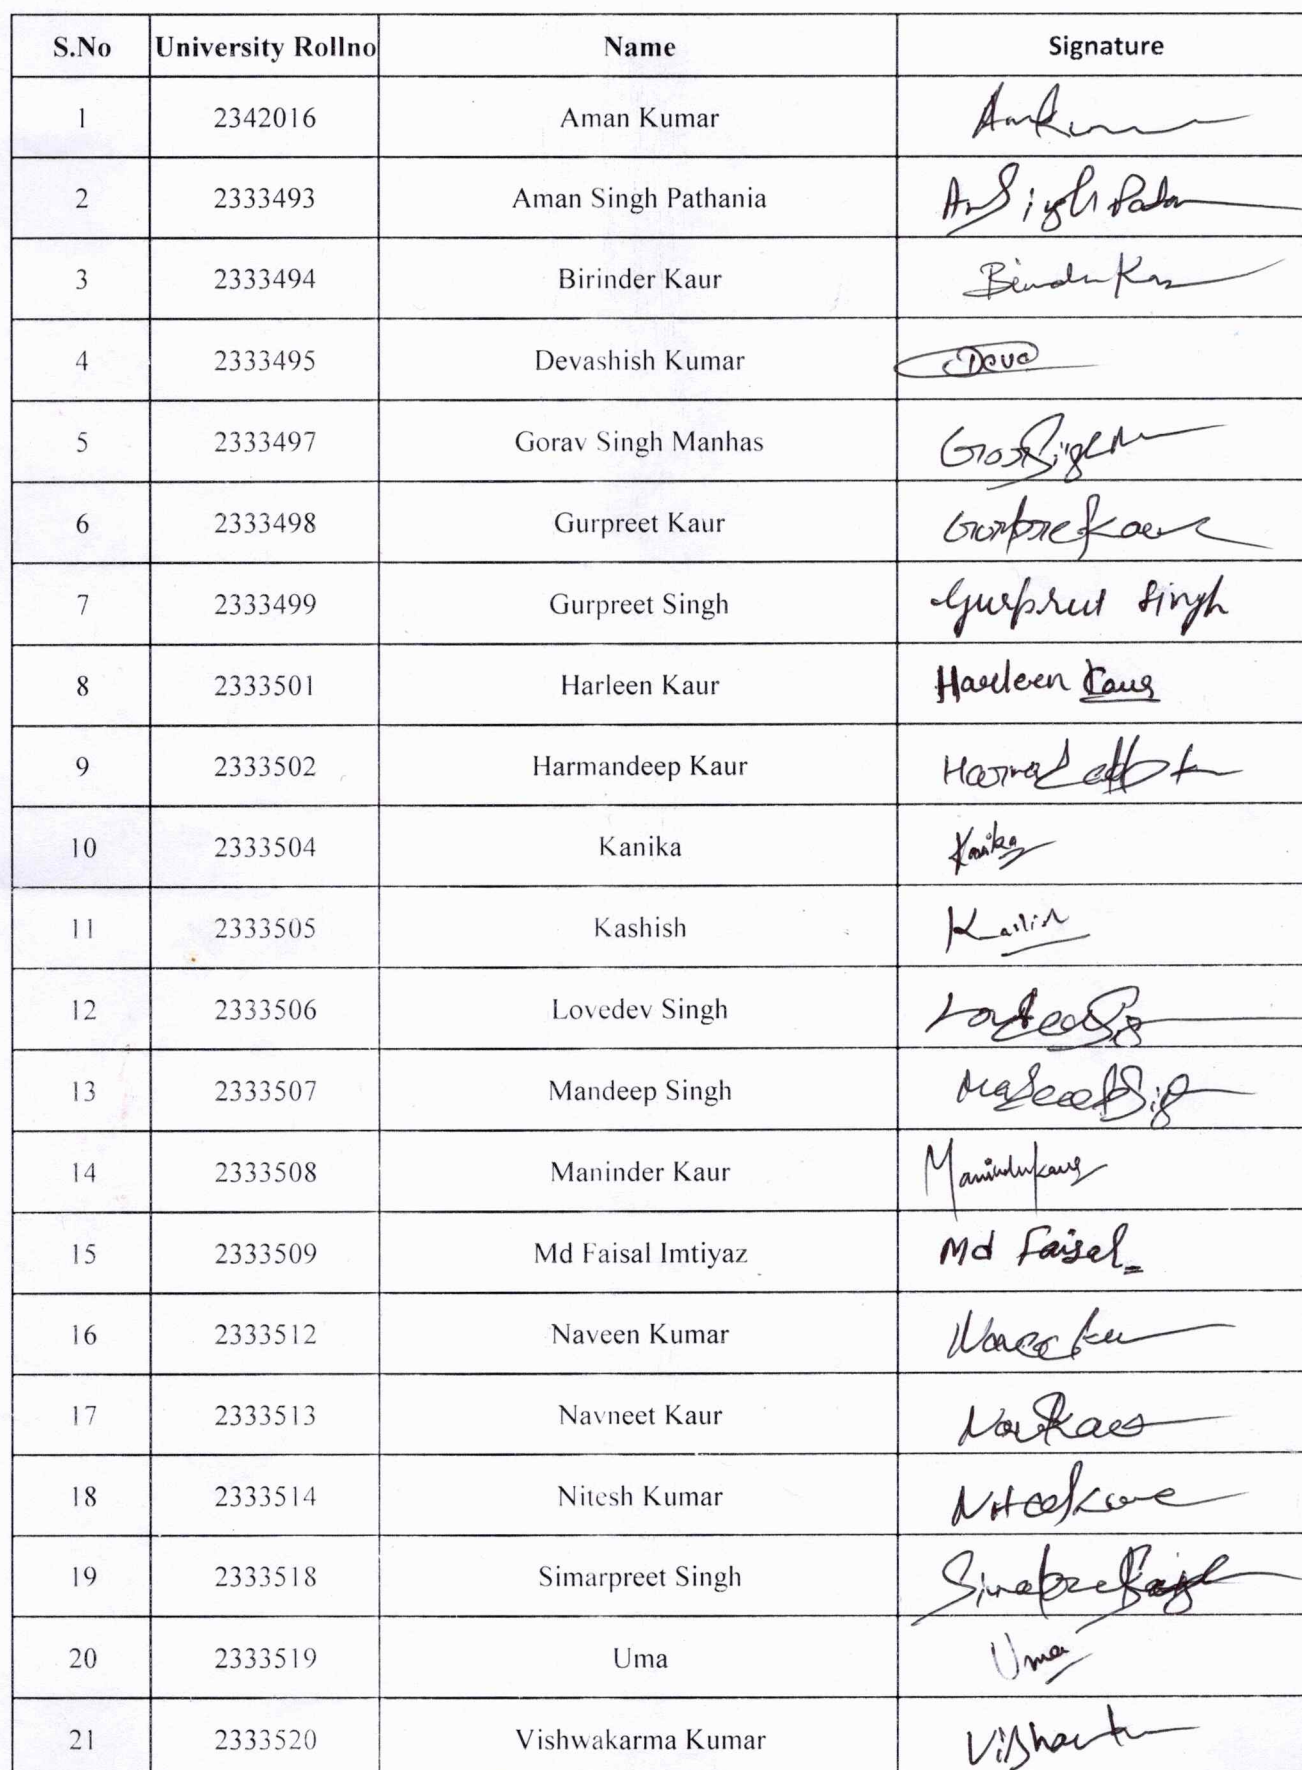 S.No University Rollno Name Signature
1 2342016 Aman Kumar
2 2333493 Aman Singh Pathania
3 2333494 Birinder Kaur
4 2333495 Devashish Kumar
5 2333497 Gorav Singh Manhas
6 2333498 Gurpreet Kaur
7 2333499 Gurpreet Singh Gurpreet Singh
8 2333501 Harleen Kaur Harleen Kaur
9 2333502 Harmandeep Kaur
10 2333504 Kanika Kanika
11 2333505 Kashish
12 2333506 Lovedev Singh
13 2333507 Mandeep Singh
14 2333508 Maninder Kaur Maninder Kaur
15 2333509 Md Faisal Imtiyaz Md Faisal
16 2333512 Naveen Kumar
17 2333513 Navneet Kaur
18 2333514 Nitesh Kumar
19 2333518 Simarpreet Singh
20 2333519 Uma Uma
21 2333520 Vishwakarma Kumar